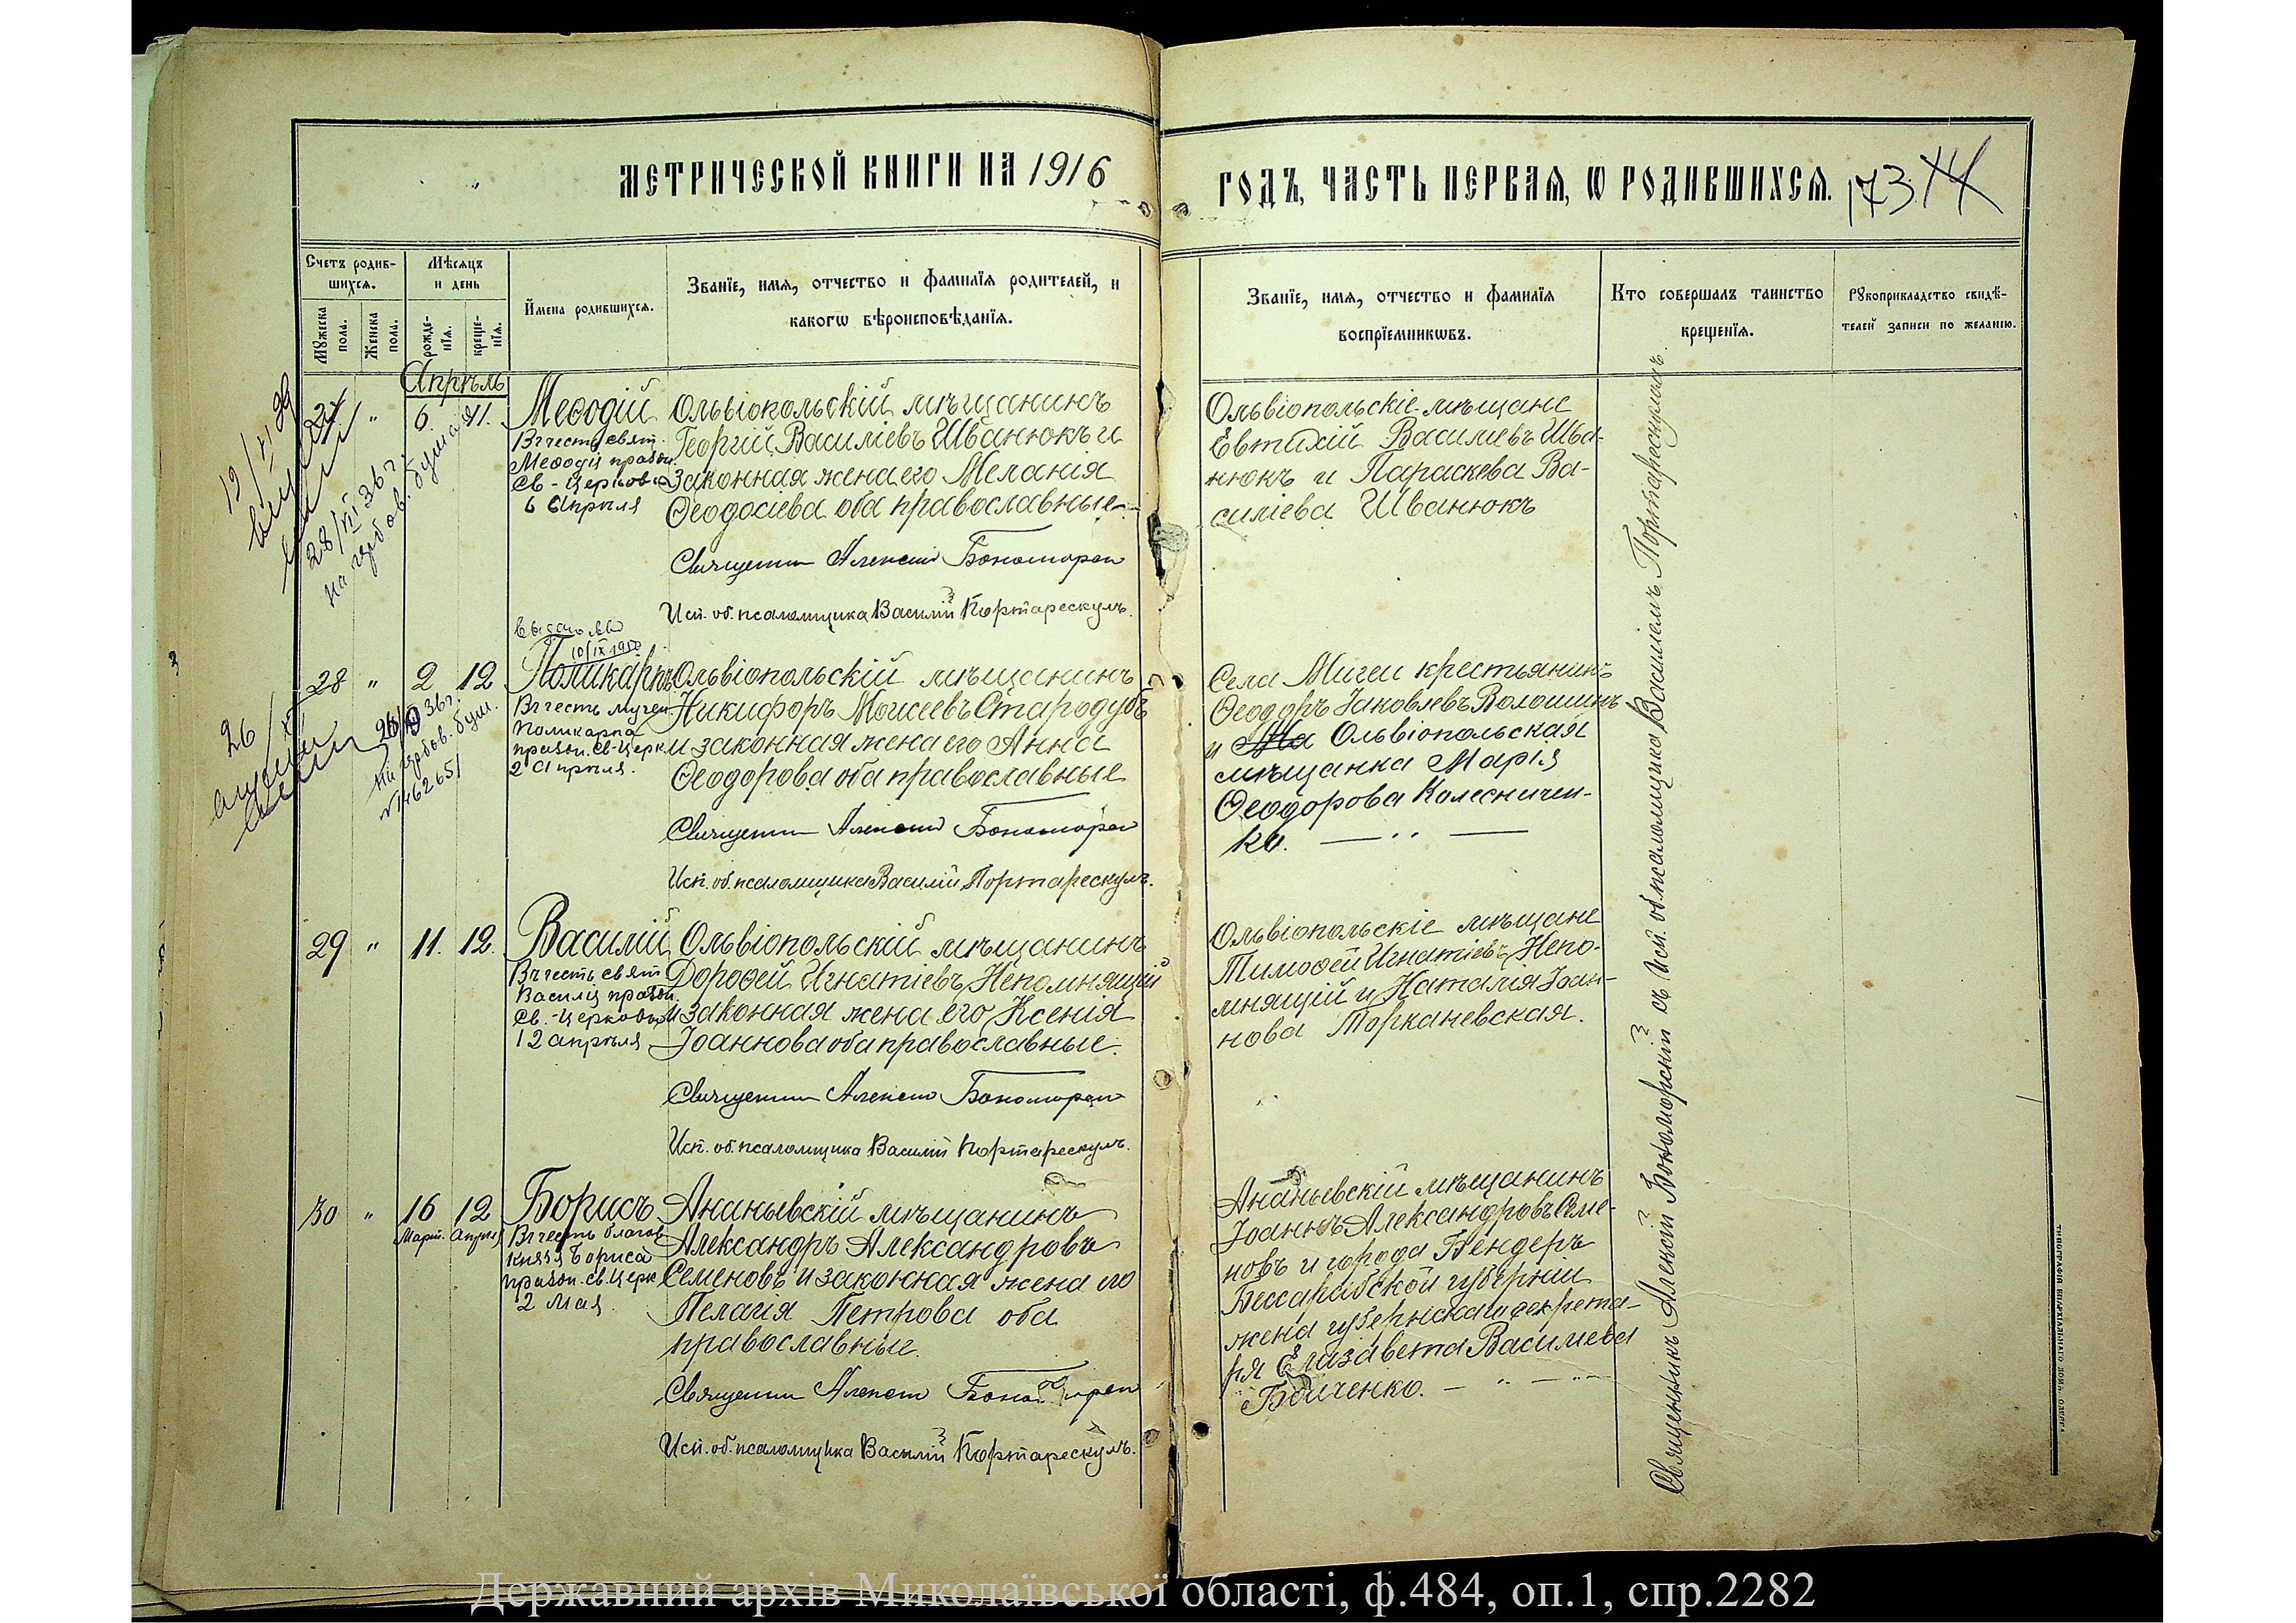 МЕТРИЧЕСКОЙ КНИГИ НА 1916
ГОДЪ, ЧАСТЬ ПЕРВАЯ, Ѡ РОДИВШИХСЯ. 173.
Счетъ родив-
шихся.
Мужеска
пола.
Женска
пола.
Мѣсяцъ
и день
рожде-
нїя.
креще-
нїя.
Имена родившихся.
Званїе, имя, отчество и фамилїя родителей, и
какогѡ вѣроисповѣданїя.
Званїе, имя, отчество и фамилїя
воспрїемникѡвъ.
Кто совершалъ таинство
крещенїя.
Рукоприкладство свидѣ-
телей записи по желанію.
Апрѣль
27 " 6 11.
Меѳодій
Въ честь свят.
Меѳодія празн.
Св-Церковію
6 Апрѣля
Ольвіопольскій мѣщанинъ
Георгій Василіевъ Шванюкъ и
законная жена его Меланія
Ѳеодосіева оба православные
Священник Алексій Бономорск
Исп. об. псаломщика Василій Портарескулъ.
Ольвіопольскіе мѣщане
Евтихій Василиевъ Шва-
нюкъ и Параскева Ва-
силіева Шванюкъ
19/XI 39
28/VI 36 г.
на гербов. бумаг.
10/IX 1950
28 " 2 12
Поликарпъ
Въ честь мучен.
Поликарпа
празн. св-церк.
2 Апрѣля.
Ольвіопольскій мѣщанинъ
Никифоръ Моисеевъ Стародубъ
и законная жена его Анна
Ѳеодорова оба православные
Священник Алексій Бономорск
Исп. об. псаломщика Василій Портарескулъ.
Села Мигеи крестьянинъ
Ѳеодоръ Іаковлевъ Волошинъ
и Ольвіопольская
мѣщанка Марія
Ѳеодорова Колесничен-
ко.
На гербов. бум.
№146265
29 " 11. 12.
Василій
Въ честь свят
Василія празн.
Св.-Церковію
12 апрѣля
Ольвіопольскій мѣщанинъ
Дороѳей Игнатіевъ Непомнящій
и законная жена его Ксенія
Іоаннова оба православные.
Священник Алексій Бономорск
Исп. об. псаломщика Василій Портарескулъ.
Ольвіопольскіе мѣщане
Тимоѳей Игнатіевъ Непо-
мнящій и Наталія Іоан-
нова Торкановская.
30 " 16 12
Март. Апрѣля
Борисъ
Въ честь благов.
князя Бориса
празн. св. Церк
2 Мая.
Ананьевскій мѣщанинъ
Александръ Александровъ
Семеновъ и законная жена его
Пелагія Петрова оба
православные.
Священник Алексій
Исп. об. псаломщика Василій Портарескулъ.
Ананьевскій мѣщанинъ
Іоаннъ Александровъ Семе-
новъ и города Бендеръ
Бессарабской губерніи
жена губернскаго секрета-
ря Елизавета Василиева
Бойченко.
Священникъ Алексій Бономорскій съ Исп. об. псаломщика Василіемъ Портарескуломъ.
ТИПОГРАФІЯ ЕПАРХІАЛЬНАГО ДОМА, ОДЕССА
Державний архів Миколаївської області, ф.484, оп.1, спр.2282